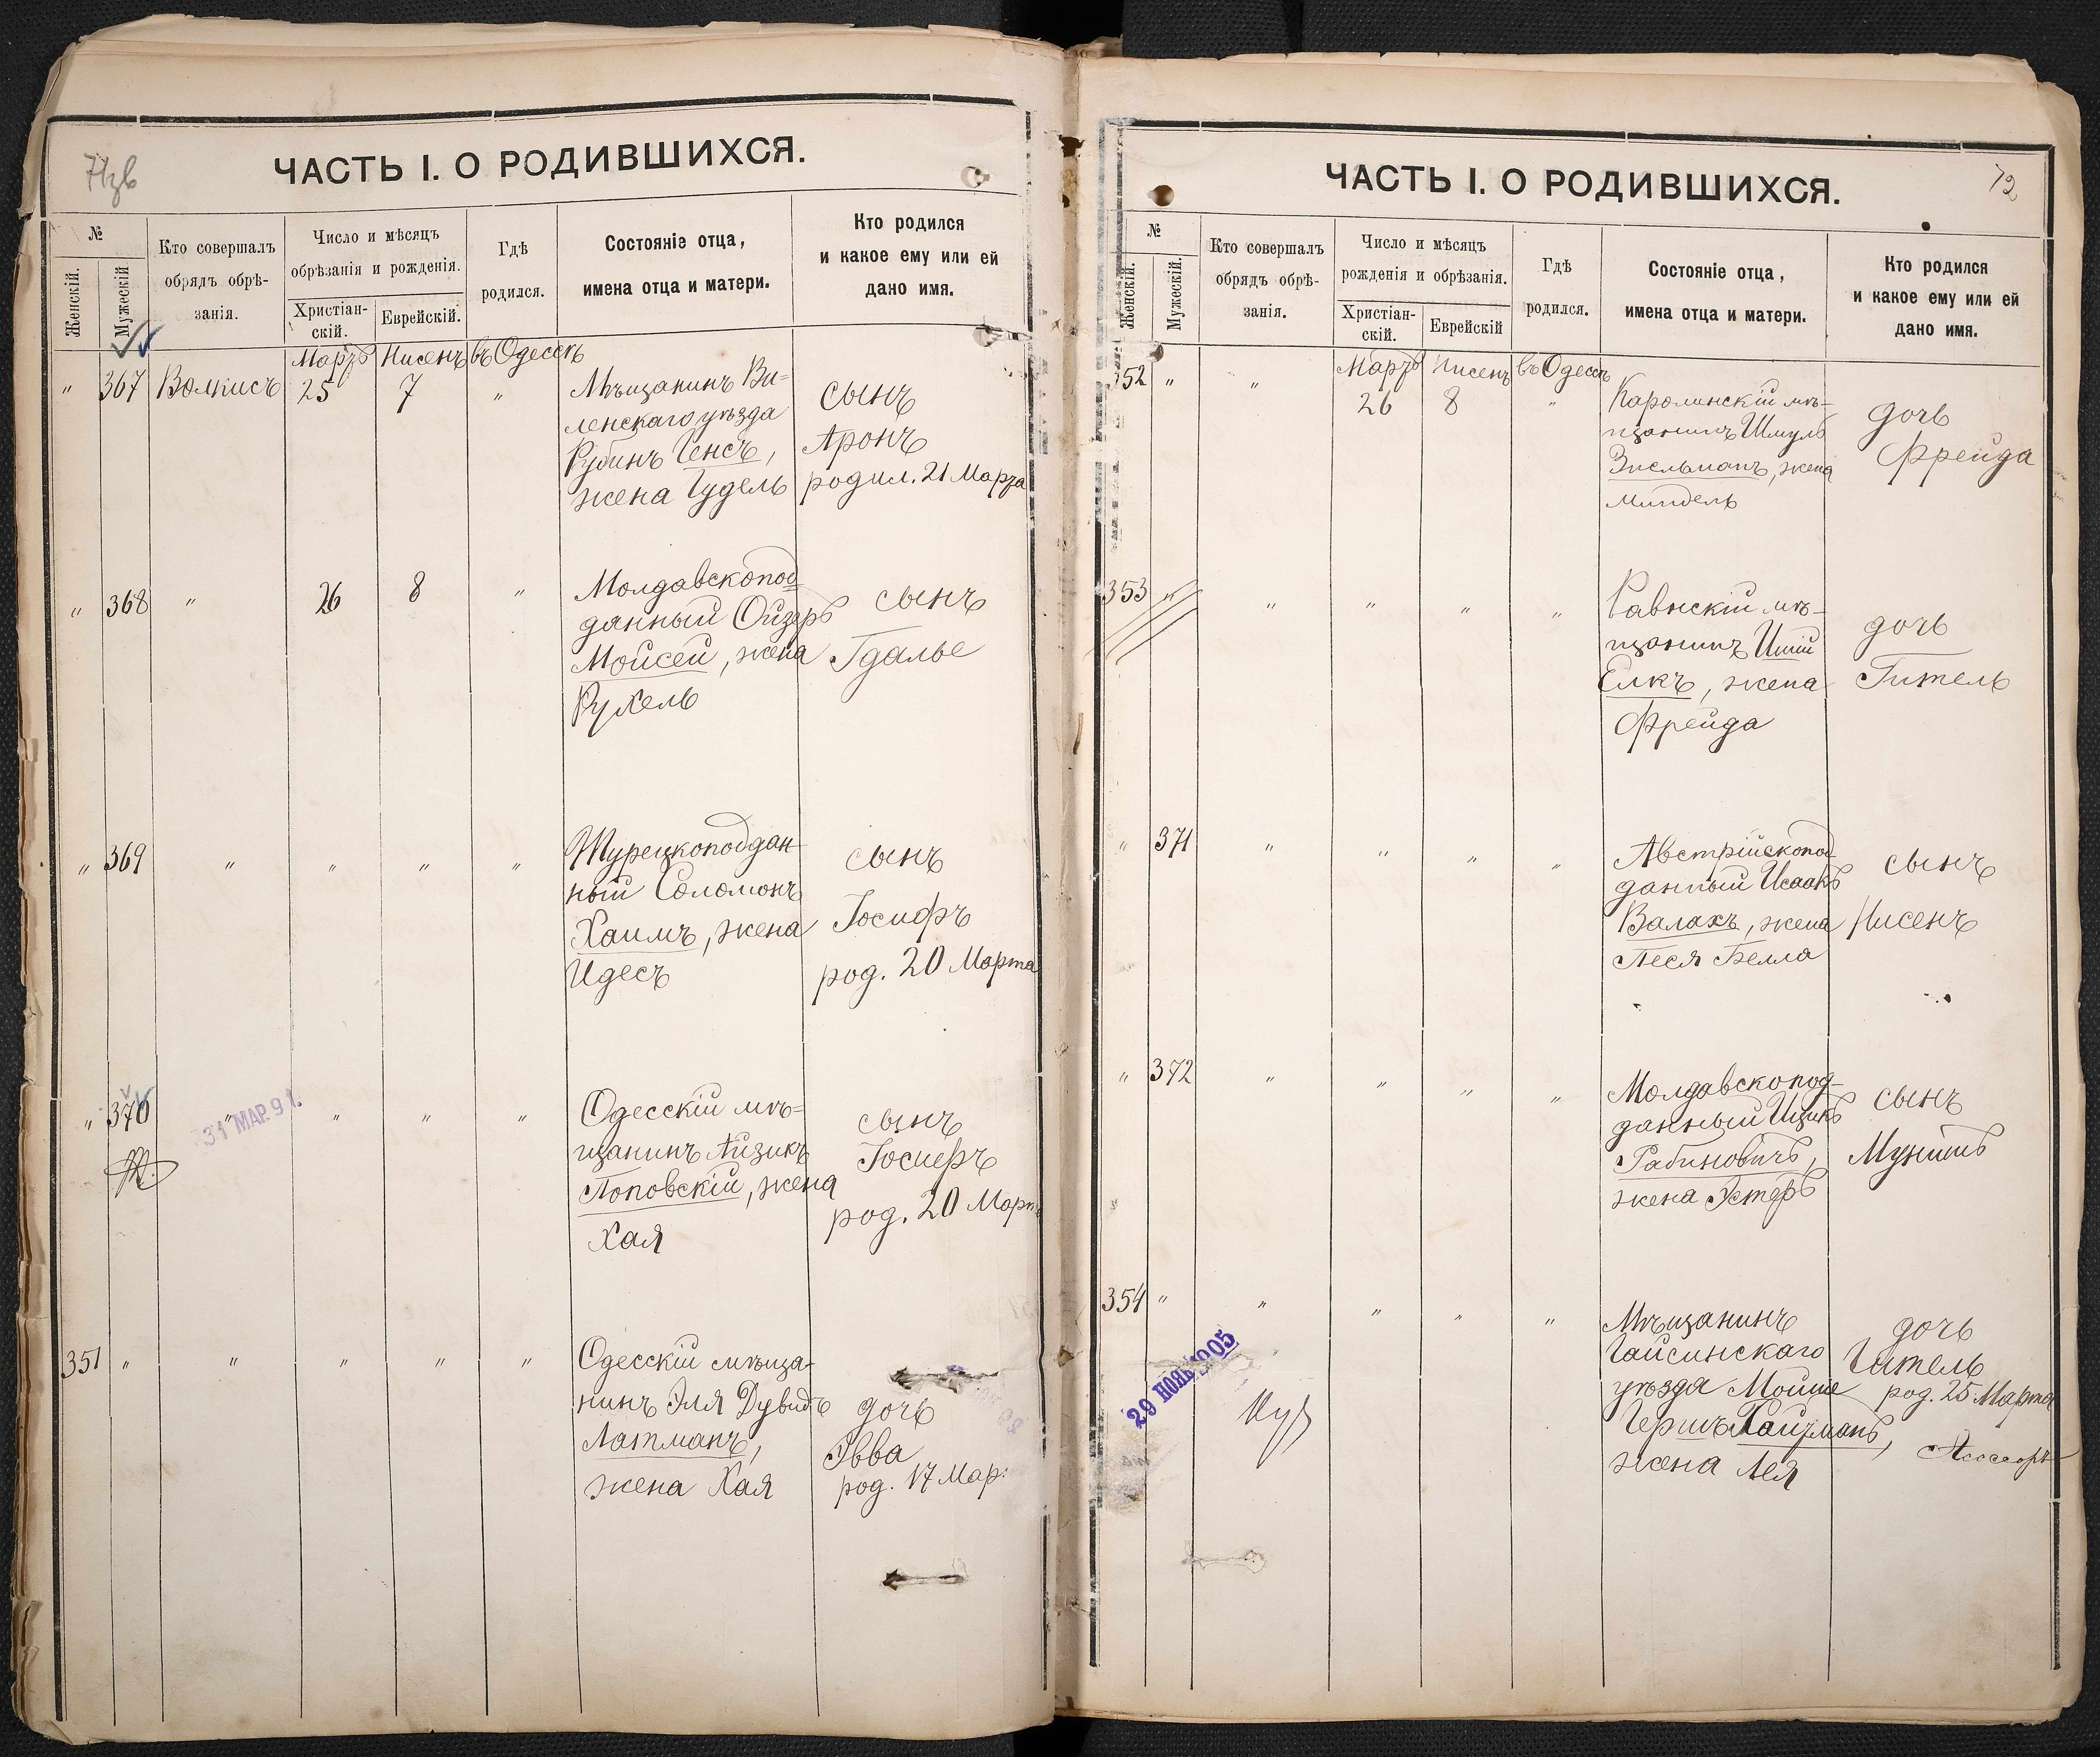 71зв
ЧАСТЬ I. О РОДИВШИХСЯ.
№
Женскій.
Мужескій
Кто совершалъ
обрядъ обрѣ-
занія.
Число и мѣсяцъ
обрѣзанія и рожденія.
Христіан-
скій.
Еврейскій.
Гдѣ
родился.
Состояніе отца,
имена отца и матери.
Кто родился
и какое ему или ей
дано имя.
Мартъ Нисенъ въ Одессѣ
" 367 Волкисъ 25 7 "
Мѣщанинъ Ви=
ленскаго уѣзда
Рубинъ Генсъ,
жена Гудель
сынъ
Аронъ
родил. 21 Марта
" 368 " 26 8 "
Молдавскопод=
данный Ойзеръ
Мойсей, жена
Рухель
сынъ
Гдалье
" 369 " " " "
Турецкоподдан-
ный Соломонъ
Хаимъ, жена
Идесъ
сынъ
Іосифъ
род. 20 Марта
" 370 " " " "
31 МАР. 91.
Одесскій мѣ=
щанинъ Айзикъ
Поповскій, жена
Хая
сынъ
Іосифъ
род. 20 Марта
351 " " " " "
Одесскій мѣща-
нинъ Эля Дувидъ
Латманъ,
жена Хая
дочь
Эвва
род. 17 Мар.
72
ЧАСТЬ I. О РОДИВШИХСЯ.
№
Женскій.
Мужескій.
Кто совершалъ
обрядъ обрѣ-
занія.
Число и мѣсяцъ
рожденія и обрѣзанія.
Христіан-
скій.
Еврейскій
Гдѣ
родился.
Состояніе отца,
имена отца и матери.
Кто родился
и какое ему или ей
дано имя.
Мартъ Нисенъ въ Одессѣ
352 " " 26 8 "
Каролинскій мѣ-
щанинъ Шмуль
Зисльманъ, жена
Миндель
дочь
Фрейда
353 " " " " "
Равнскій мѣ-
щанинъ
Елкъ, жена
Фрейда
дочь
Гитель
" 371 " " " "
Австрійскопод-
данный Исаакъ
Валахъ, жена
Песя Белла
сынъ
Нисенъ
" 372 " " " "
Молдавскопод-
данный Ицикъ
Рабиновичъ,
жена Эстеръ
сынъ
Мунишъ
354 " " " " "
29 НОЯБ 1905
Мѣщанинъ
Гайсинскаго
уѣзда Мойше
Гершъ Гайзманъ,
жена Лея
дочь
Гитель
род. 25 Марта